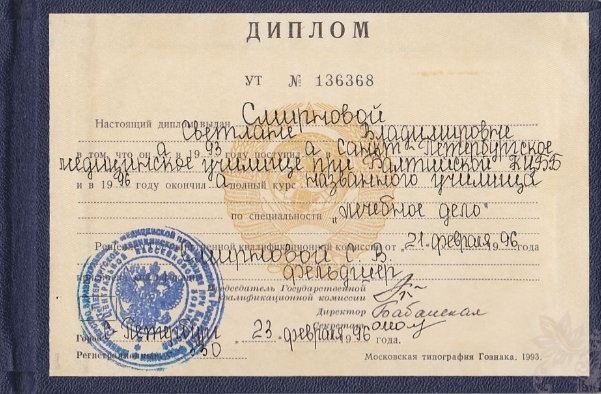 ДИПЛОМ
УТ № 136368
Настоящий диплом выдан Смирновой
Светлане Владимировне
в том, что он а в 19 93 году поступил а в Санкт-Петербургское
медицинское училище при Балтийской ЦББ
и в 19 96 году окончил а полный курс названного училища
по специальности „лечебное дело"
Решением Государственной квалификационной комиссии от „21 февраля 96 года
Смирновой С. В.
фельдшер
Председатель Государственной
квалификационной комиссии
Директор Бабанская
Секретарь
Город С Петербург 23 февраля 1996 года.
Регистрационный № 330
Московская типография Гознака. 1993.